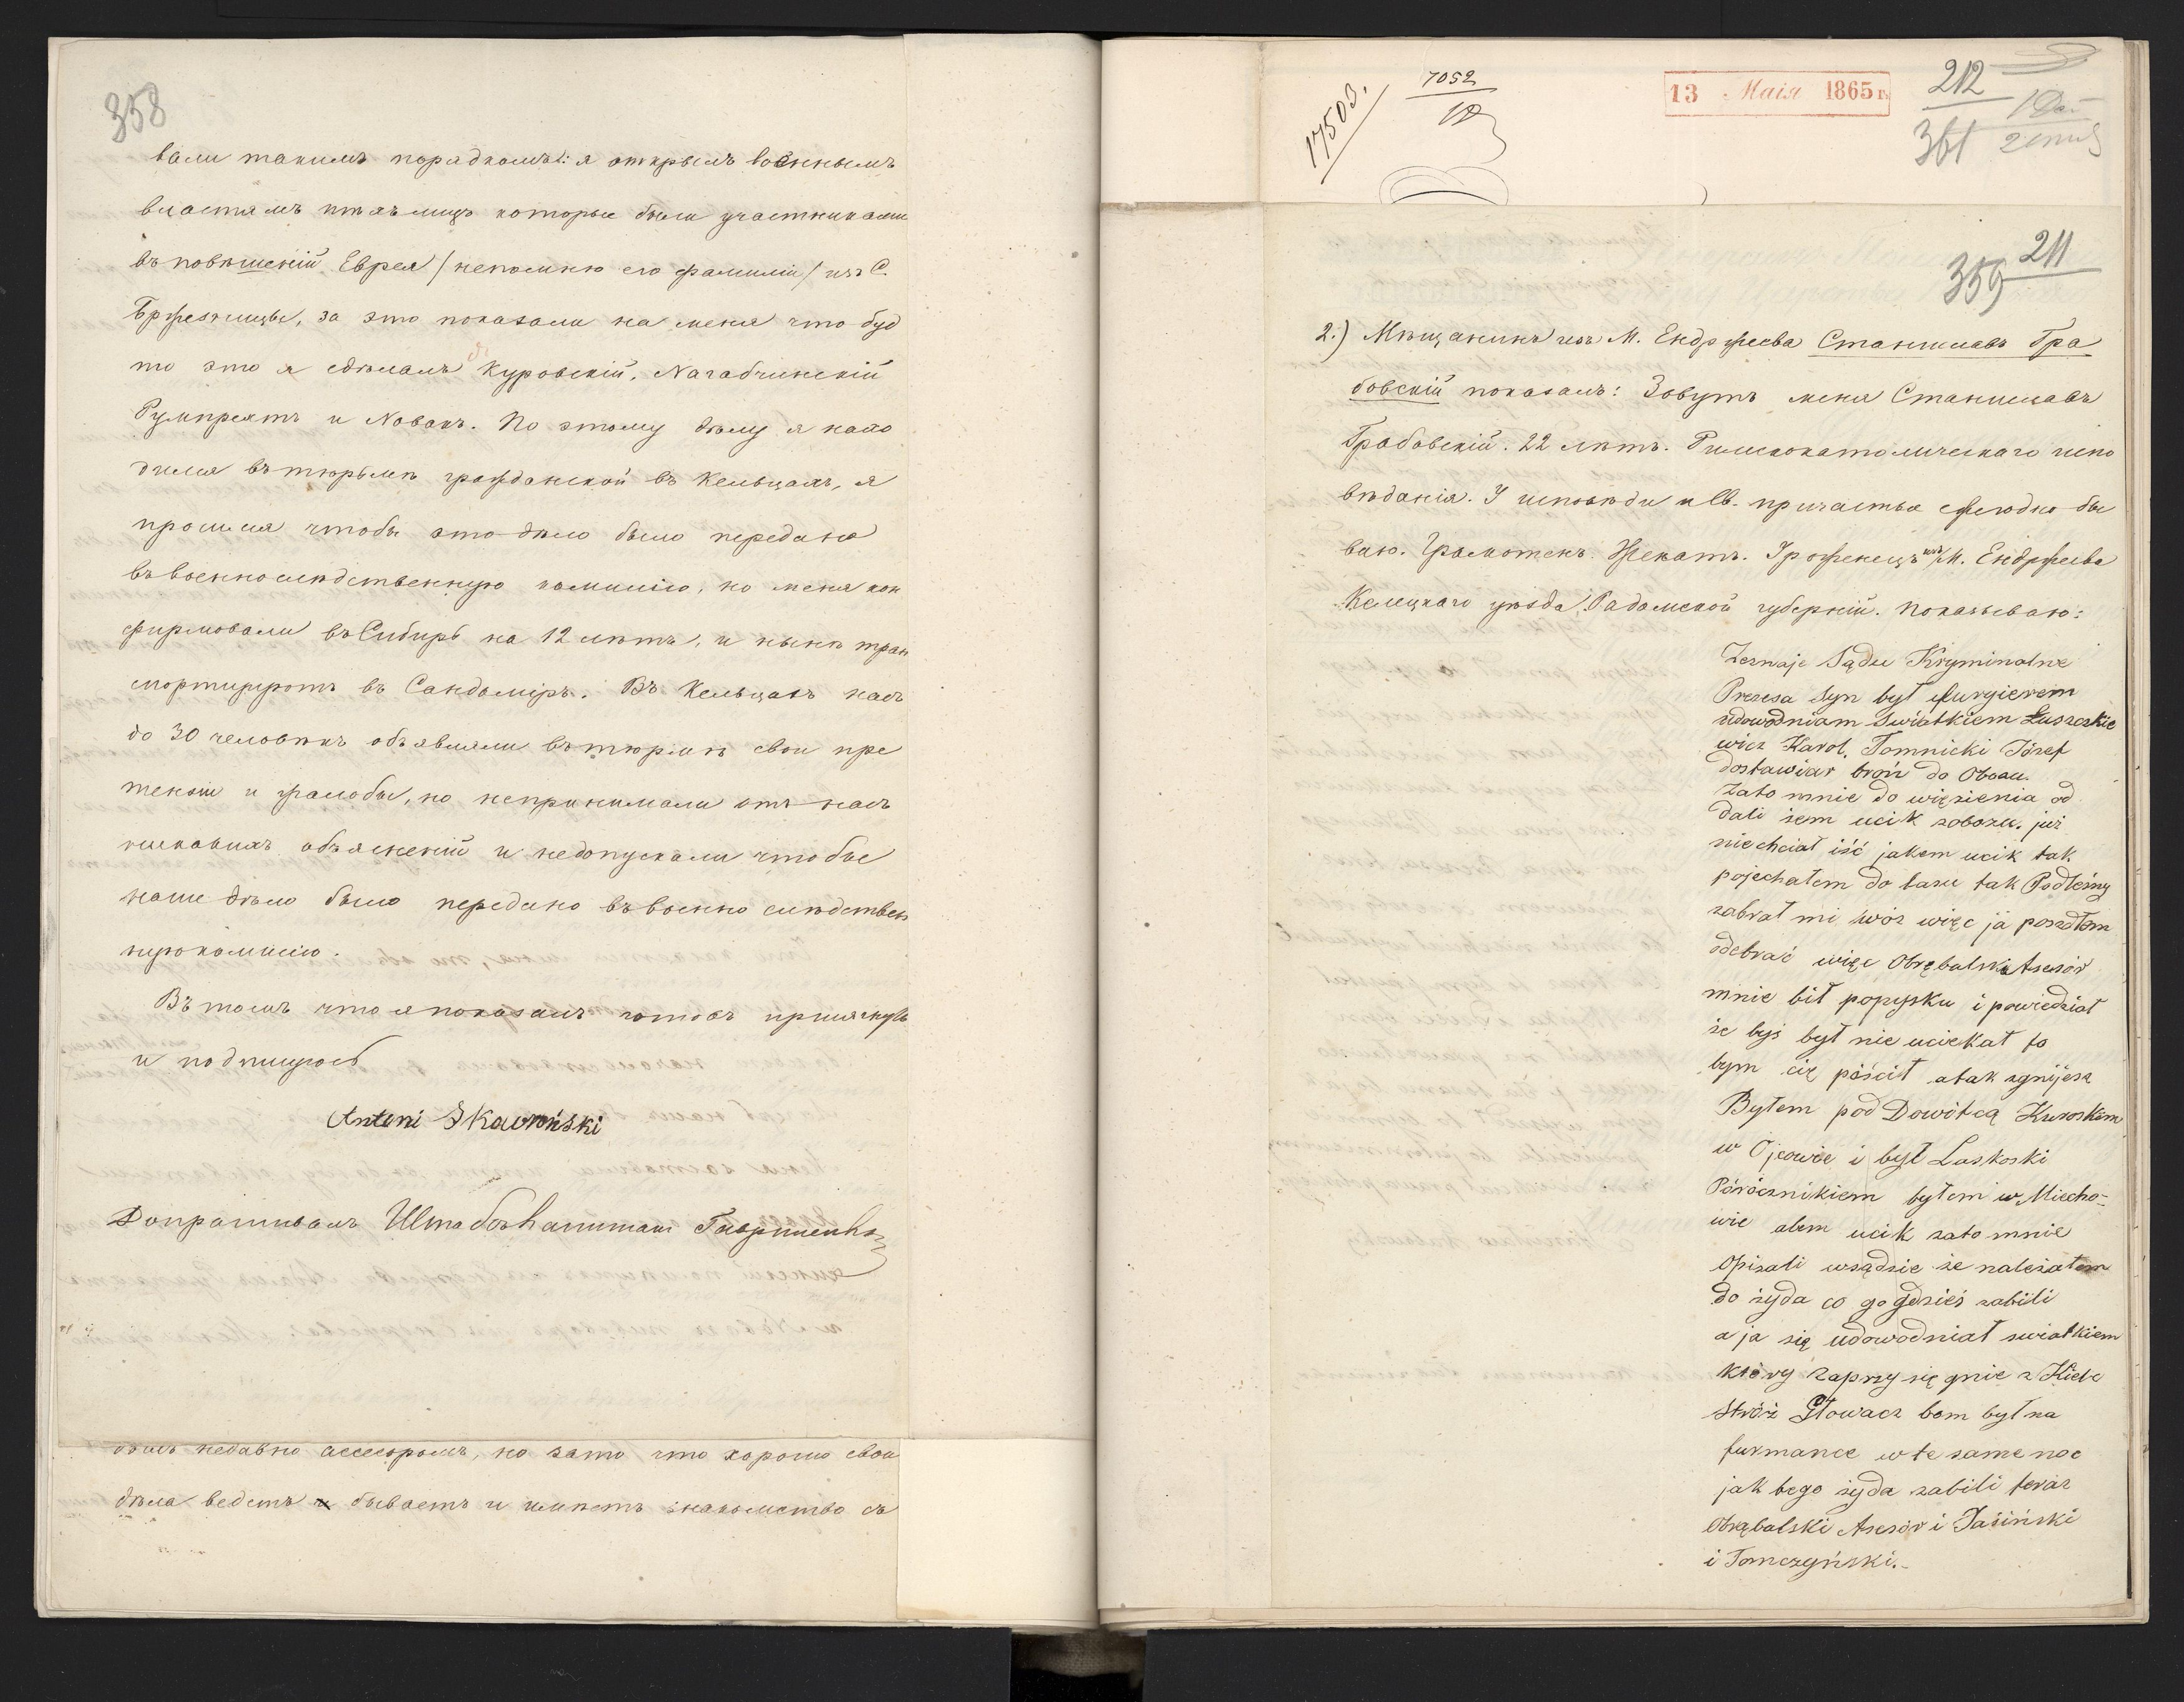 358
вали такимъ порядкомъ: я открылъ военнымъ
властямъ тѣхъ лицъ которые были участниками
въ повѣшеніи Еврея / непомню его фамиліи / изъ С.
Бржезницы, за это показали на меня что буд
то это я сдѣлалъ Куровскій,
Румпрехтъ и Новакъ. По этому дѣлу я нахо
дился въ тюрьмѣ гражданской въ Кельцахъ, я
просился чтобы это дѣло было передано
въ военнослѣдственную комисію, но меня кон
фирмовали въ Сибирь на 12 лѣтъ, и нынѣ тран
спортируютъ въ Сандоміръ. Въ Кельцахъ насъ
до 30 человѣкъ объявляли въ тюрмѣ свои пре
тензіи и жалобы, но непринимали отъ насъ
никакихъ объясненій и недопускали чтобы
наше дѣло было передано въ военно слѣдствен
нуюкомисію.
Въ томъ что я показалъ готовъ присягнуть
и подпишусь
Antoni Skawroński
Допрашивалъ Штабсъ Капитанъ Гавриленко
недавно ассесоромъ, но зато что хорошо свои
дѣла ведетъ и бываетъ и имѣетъ знакомство съ
17503.
7052
13 Маія 1865 г.
212
361
211
359
2.) Мѣщанинъ изъ М. Ендржеева Станиславъ Гра
бовскій показалъ: Зовутъ меня Станиславъ
Грабовскій. 22 лѣтъ. Римскокатолическаго испо
вѣданія. У исповѣди и Св. причастья ежегодно бы
ваю. Грамотенъ. Женатъ. Уроженецъ изъ М. Ендржеева
Келецкаго уѣзда Радомской губерніи. Показываю:
Zeznaje Sądu Kryminalne
Prezesa syn był furgierem
udowodniam Swiatkiem Łuszczkie
wicz Karol, Tomnicki Józef
dostawiar broń do Obozu.
Zato mnie do więzienia od
dali żem ucik zobozu. już
niechciał iść jakem ucik tak
pojechałem do lasu tak Podleśny
zabrał mi wóz więc ja poszdłem
odebrać więc Obrębalski Asesór
mnie bił popysku i powiedział
że byś był nie uciekał to
bym cię pościł atak zgnijesz
Byłem pod Dowótcą Kuroskim
w Ojcowie i był Laskoski
Póróćznikiem byłem w Miecho-
wie alem ucik zato mnie
opisali wsądzie że należałem
do żyda co go gdzieś zabili
a ja się udowodniał swiatkiem
który zaprzy się gnie z Kielc
Stróż Głowacz bem był na
furmance w te same noc
jak tego żyda zabili teraz
Obrębalski Asesór i Jasiński
i Tomczyński.-